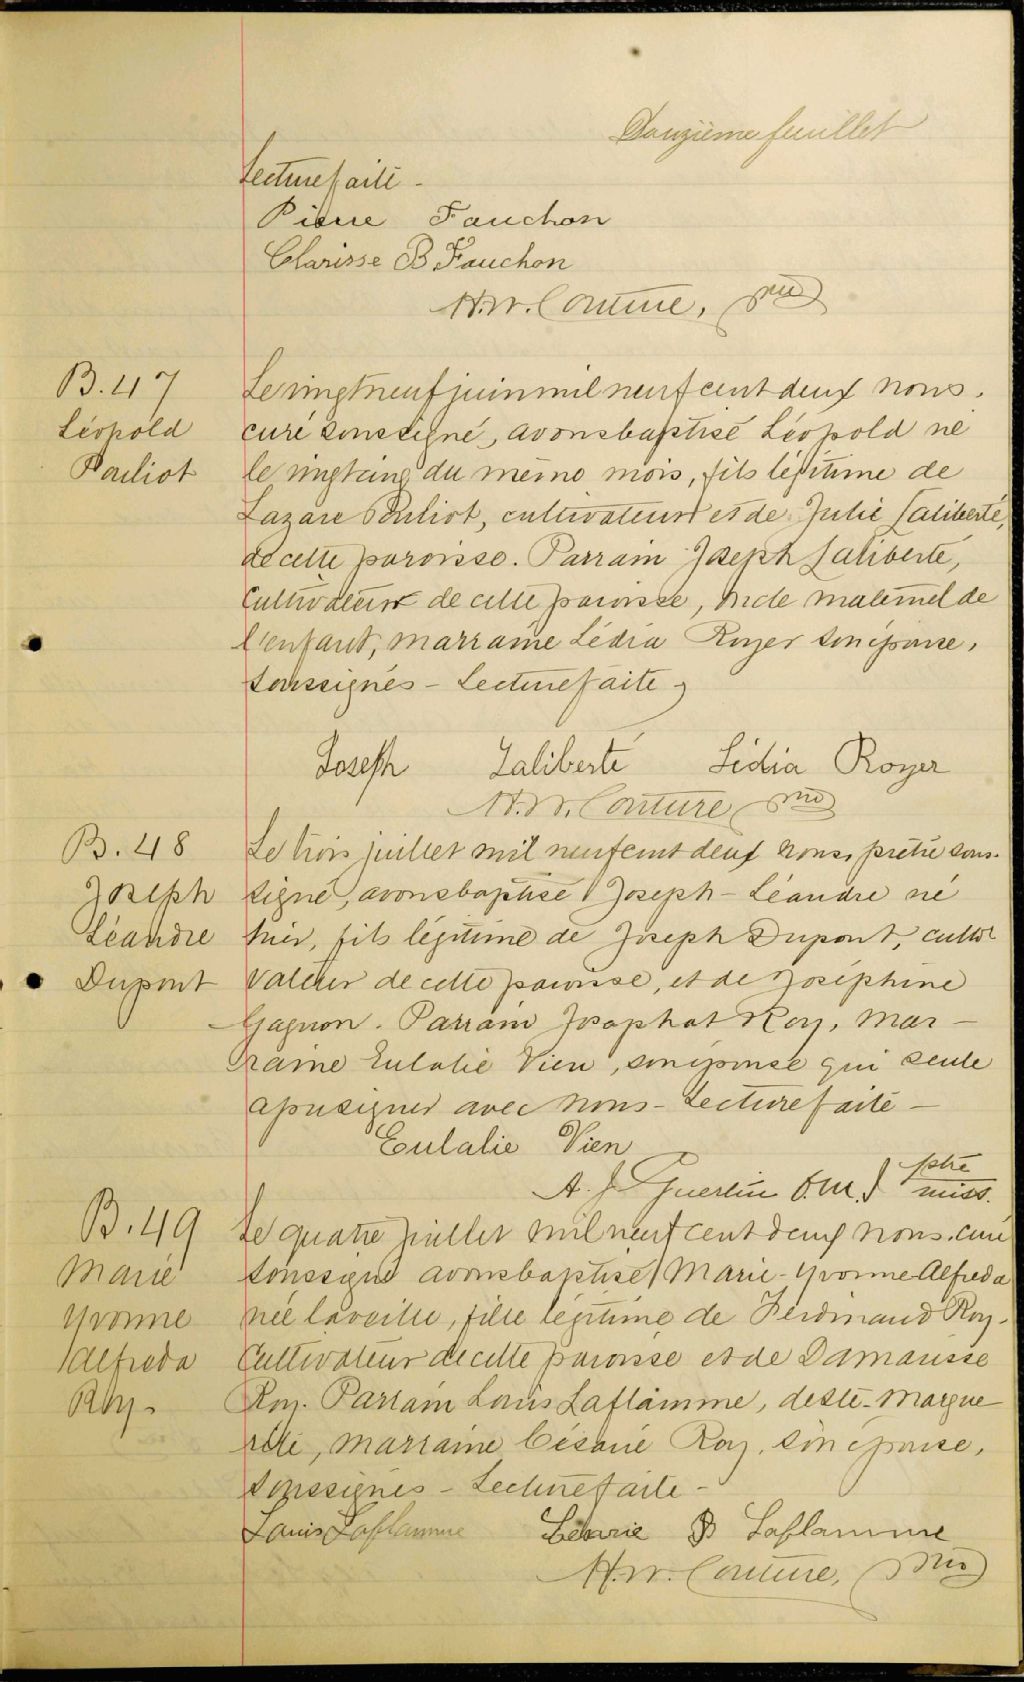 Douzième feuillet
Lecture faite -
Pierre Fauchon
Clarisse B Fauchon
H.W. Couture, ptre
B. 47
Léopold
Pouliot
Le vingt neuf juin mil neuf cent deux nous,
curé soussigné, avons baptisé Léopold né
le vingt cinq du même mois, fils légitime de
Lazare Pouliot, cultivateur et de Julie Laliberté,
de cette paroisse. Parrain Joseph Laliberté,
Cultivateur de cette paroisse, oncle maternel de
l'enfant, marraine Lédia Royer son épouse,
soussignés - Lecture faite -
Joseph Laliberté Lidia Royer
H.W. Couture ptre
B. 48
Joseph
Léandre
Dupont
Le trois juillet mil neuf cent deux nous, prêtre sous-
signé, avons baptisé Joseph - Léandre né
hier, fils légitime de Joseph Dupont, culti
vateur de cette paroisse, et de Joséphine
Gagnon. Parrain Josaphat Roy, mar -
raine Eulalie Vien, son épouse qui seule
a pu signer avec nous - Lecture faite -
Eulalie Vien
A. J. Guertin O.M.I ptre miss.
B. 49
Marie
Yvonne
Alfreda
Roy -
Le quatre juillet mil neuf cent deux nous, curé
soussigné avons baptisé Marie - Yvonne Alfreda
née la veille, fille légitime de Ferdinand Roy,
Cultivateur de cette paroisse et de Damarisse
Roy. Parrain Louis Laflamme, de Ste - Margue
rite, marraine Césarie Roy, son épouse,
soussignés - Lecture faite -
Louis Laflamme Césarie B Laflamme
H.W. Couture, ptre